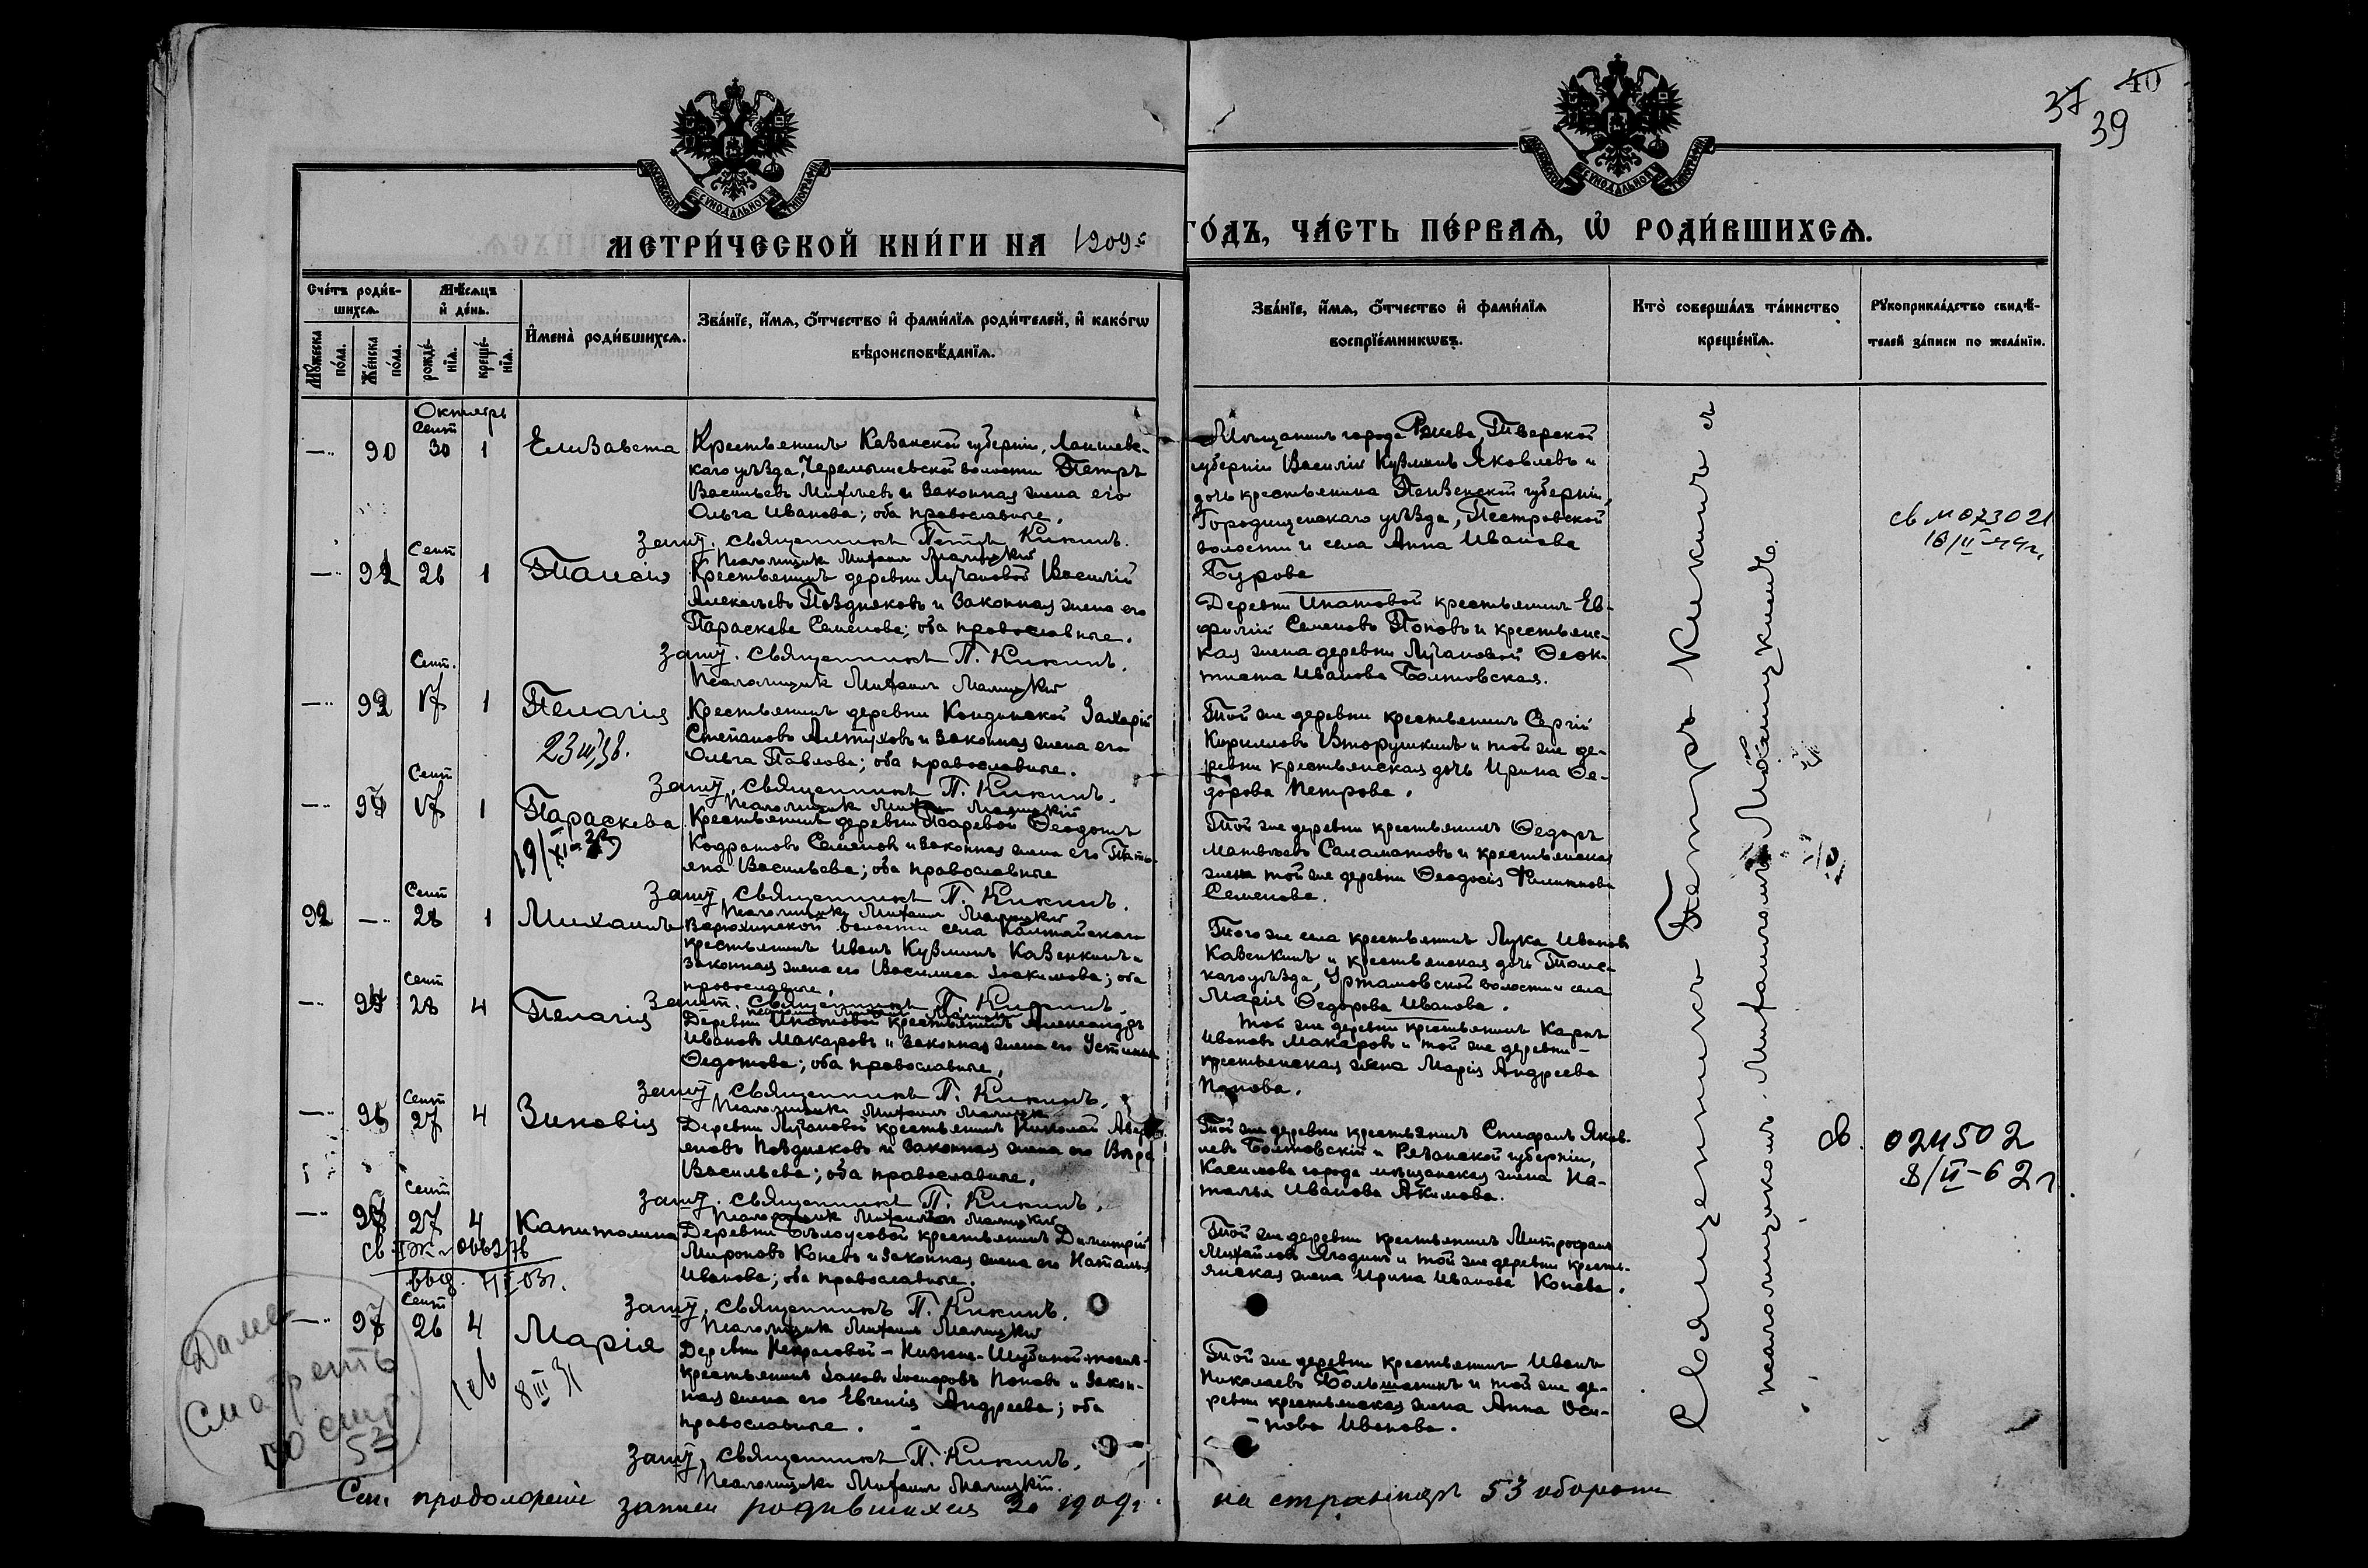 40
37
39
МОСКОВСКОЙ СѴНОДАЛЬНОЙ ТИПОГРАФІИ
МОСКОВСКОЙ СѴНОДАЛЬНОЙ ТИПОГРАФІИ
МЕТРИ́ЧЕСКОЙ КНИ́ГИ НА 1909 г ГО́ДЪ, ЧА́СТЬ ПЕ́РВАѦ, Ѡ҆ РОДИ́ВШИХСѦ.
Сче́тъ роди́в-
шихсѧ.
Мꙋ́жеска по́ла.
Же́нска по́ла.
Мѣ́сѧцъ
и҆ де́нь.
рожде́-нїѧ.
креще́-нїѧ.
И҆мена̀ роди́вшихсѧ.
Зва́нїе, и҆́мѧ, ѻ҆́тчество и҆ фамилїѧ роди́телей, и҆ како́гѡ
вѣроисповѣ́данїѧ.
Зва́нїе, и҆́мѧ, ѻ҆́тчество и҆ фами́лїѧ
воспрїе́мникѡвъ.
Кто̀ соверша́лъ та́инство
креще́нїѧ.
Рꙋкоприкла́дство свидѣ́-
телей за́писи по жела́нїю.
Октябрь
Сент
— 90 30 1 Елизавета
Крестьянинъ Казанской губерніи, Лаишевс-
каго уѣзда, Черемышевской волости Петръ
Васильевъ и законная жена его
Ольга Иванова; оба православные.
Зат. Священникъ Петръ Кикинъ.
Псаломщикъ Митрофанъ Малицкій
Мѣщанинъ города Ржева, Тверской
губерніи Василій Кузминъ Яковлевъ и
дочь крестьянина Пензенской губерніи,
Городищенскаго уѣзда, Пестровской
волости и села Анна Иванова
Бурова
св 073021
18/II-44 г.
Сент
— 91 26 1 Таисія
Крестьянинъ деревни Лучановой Василій
Алексѣевъ Поздняковъ и законная жена его
Параскева Семенова; оба православные.
Священникъ П. Кикинъ.
Псаломщикъ Малицкій
Деревни Ипатовой крестьянинъ Ев-
фимій Семеновъ Поповъ и крестьянс-
кая жена деревни Лучановой Ѳеок-
тиста Иванова Болтовская.
Сент.
— 92 17 1 Пелагія
23 III 38.
Крестьянинъ деревни Кандинской Захарій
Степановъ Алтуховъ и законная жена его
Ольга Павлова; оба православные.
Священникъ П. Кикинъ.
Псаломщикъ Малицкій
Той же деревни крестьянинъ Сергій
Кирилловъ Вторушинъ и той же де-
ревни крестьянская дочь Ирина Ѳе-
дорова Петрова.
Сент
— 93 17 1 Параскева
19/XI-
Крестьянинъ деревни Писаревой Ѳеодотъ
Кодратовъ Семеновъ и законная жена его Тать-
яна Васильева; оба православные
Священникъ П. Кикинъ.
Псаломщикъ Малицкій
Той же деревни крестьянинъ Ѳедоръ
Матвѣевъ Саламатовъ и крестьянская
жена той же деревни Ѳеодосія Филиппова
Семенова.
Сент
92 — 28 1 Михаилъ
Варюхинской волости села Калтайскаго
крестьянинъ Иванъ Кузминъ Казенкинъ и
законная жена его Василиса Іоакимова; оба
православные.
Священникъ П. Кикинъ.
Того же села крестьянинъ Лука Ивановъ
Казенкинъ и крестьянская дочь Томс-
каго уѣзда, Уртамовской волости и села
Марія Ѳедорова Иванова.
Сент
— 94 28 4 Пелагія
Деревни Ипатовой крестьянинъ Александръ
Ивановъ Макаровъ и законная жена его Устинья
Ѳедотова; оба православные.
Священникъ П. Кикинъ.
Псаломщикъ Малицкій
Той же деревни крестьянинъ Карпъ
Ивановъ Макаровъ и той же деревни –
крестьянская жена Марія Андреева
Попова.
Сент
— 95 27 4 Зиновія
Деревни Лучановой крестьянинъ Николай Авер-
яновъ Поздняковъ и законная жена его Вѣра
Васильева; оба православные.
Священникъ П. Кикинъ.
Псаломщикъ Малицкій
Той же деревни крестьянинъ Стефанъ Яков-
левъ Болтовскій и Рязанской губерніи,
Касимова города мѣщанская жена На-
талья Иванова Акимова.
св. 024502
8/II-62 г
Сент
— 96 27 4 Капитолина
Деревни Бѣлоусовой крестьянинъ Димитрій
Мироновъ Коневъ и законная жена его Наталья
Иванова; оба православные.
Священникъ П. Кикинъ.
Псаломщикъ Малицкій
Той же деревни крестьянинъ Митрофанъ
Михайловъ Ягодинъ и той же деревни кресть-
янская жена Ирина Иванова Конева.
Сент
— 97 26 4 Марія
8 III 31
Деревни Некрасовой – Нижне-Шубиной тожъ –
крестьянинъ Іаковъ Поповъ и закон-
ная жена его Евгенія Андреева; оба
православные.
Священникъ П. Кикинъ.
Псаломщикъ Малицкій.
Той же деревни крестьянинъ Иванъ
Николаевъ Большанинъ и той же де-
ревни крестьянская жена Анна Оси-
пова Иванова.
Священникъ Петръ Кикинъ съ
псаломщикомъ Митрофаномъ Малицкимъ.
Далее
Смотреть
на стр.
53
См. продолженіе записи родившихся за 1909 г. на страницѣ 53 оборотѣ